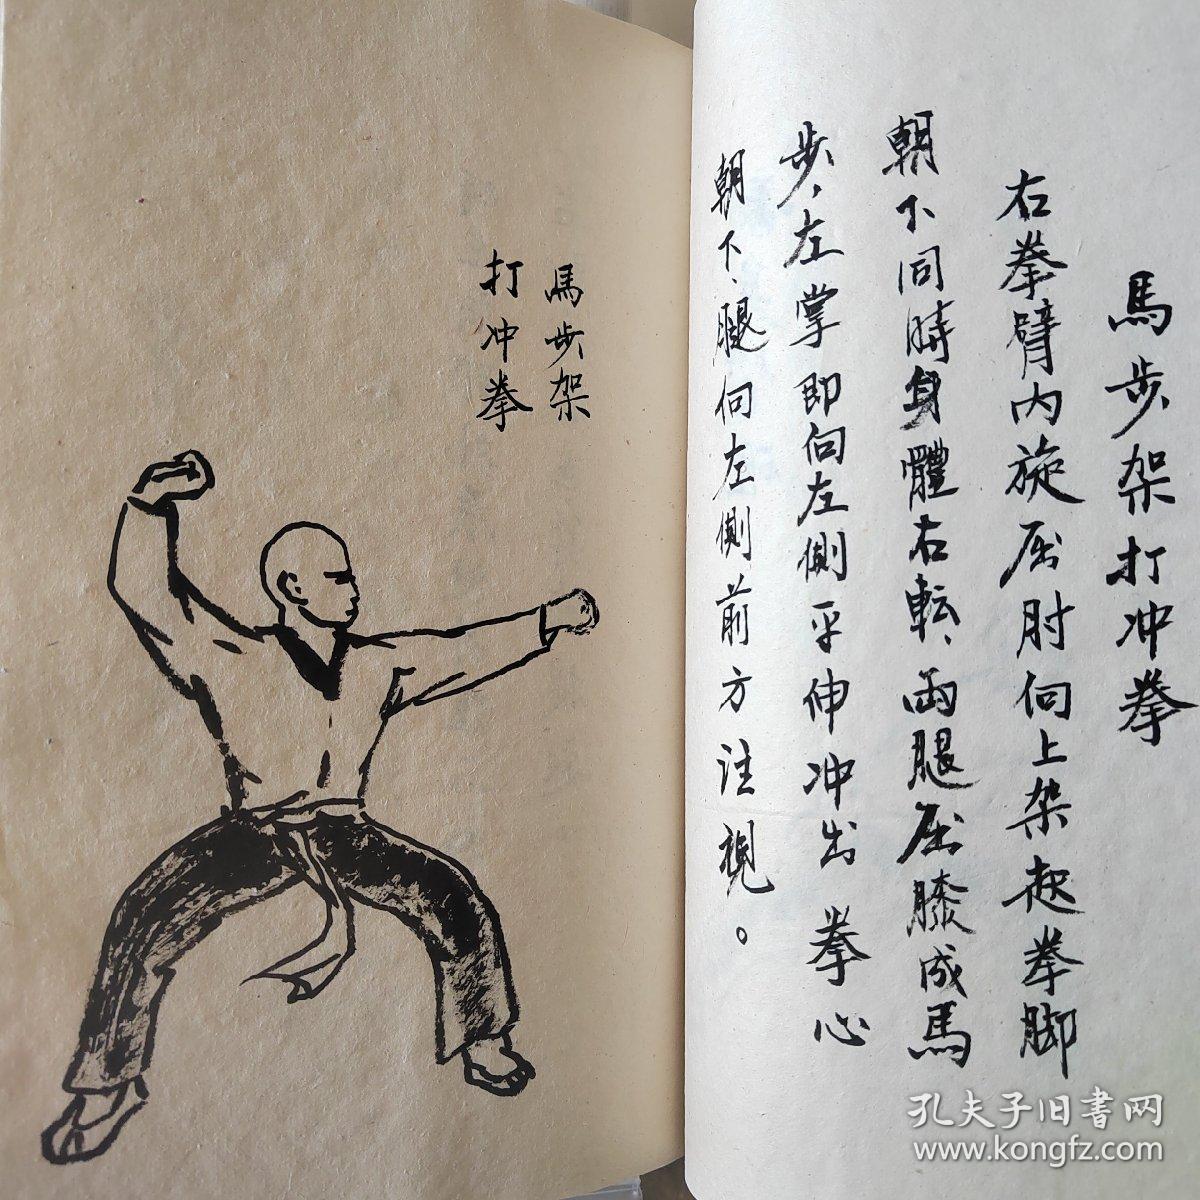 馬步架打冲拳
右拳臂内旋屈肘向上架起拳脚
朝下同時身體右転、両腿屈膝成馬
步，左掌即向左側平伸冲出拳心
朝下、腿向左側前方注視。
馬步架
打冲拳
孔夫子旧書网
www.kongfz.com